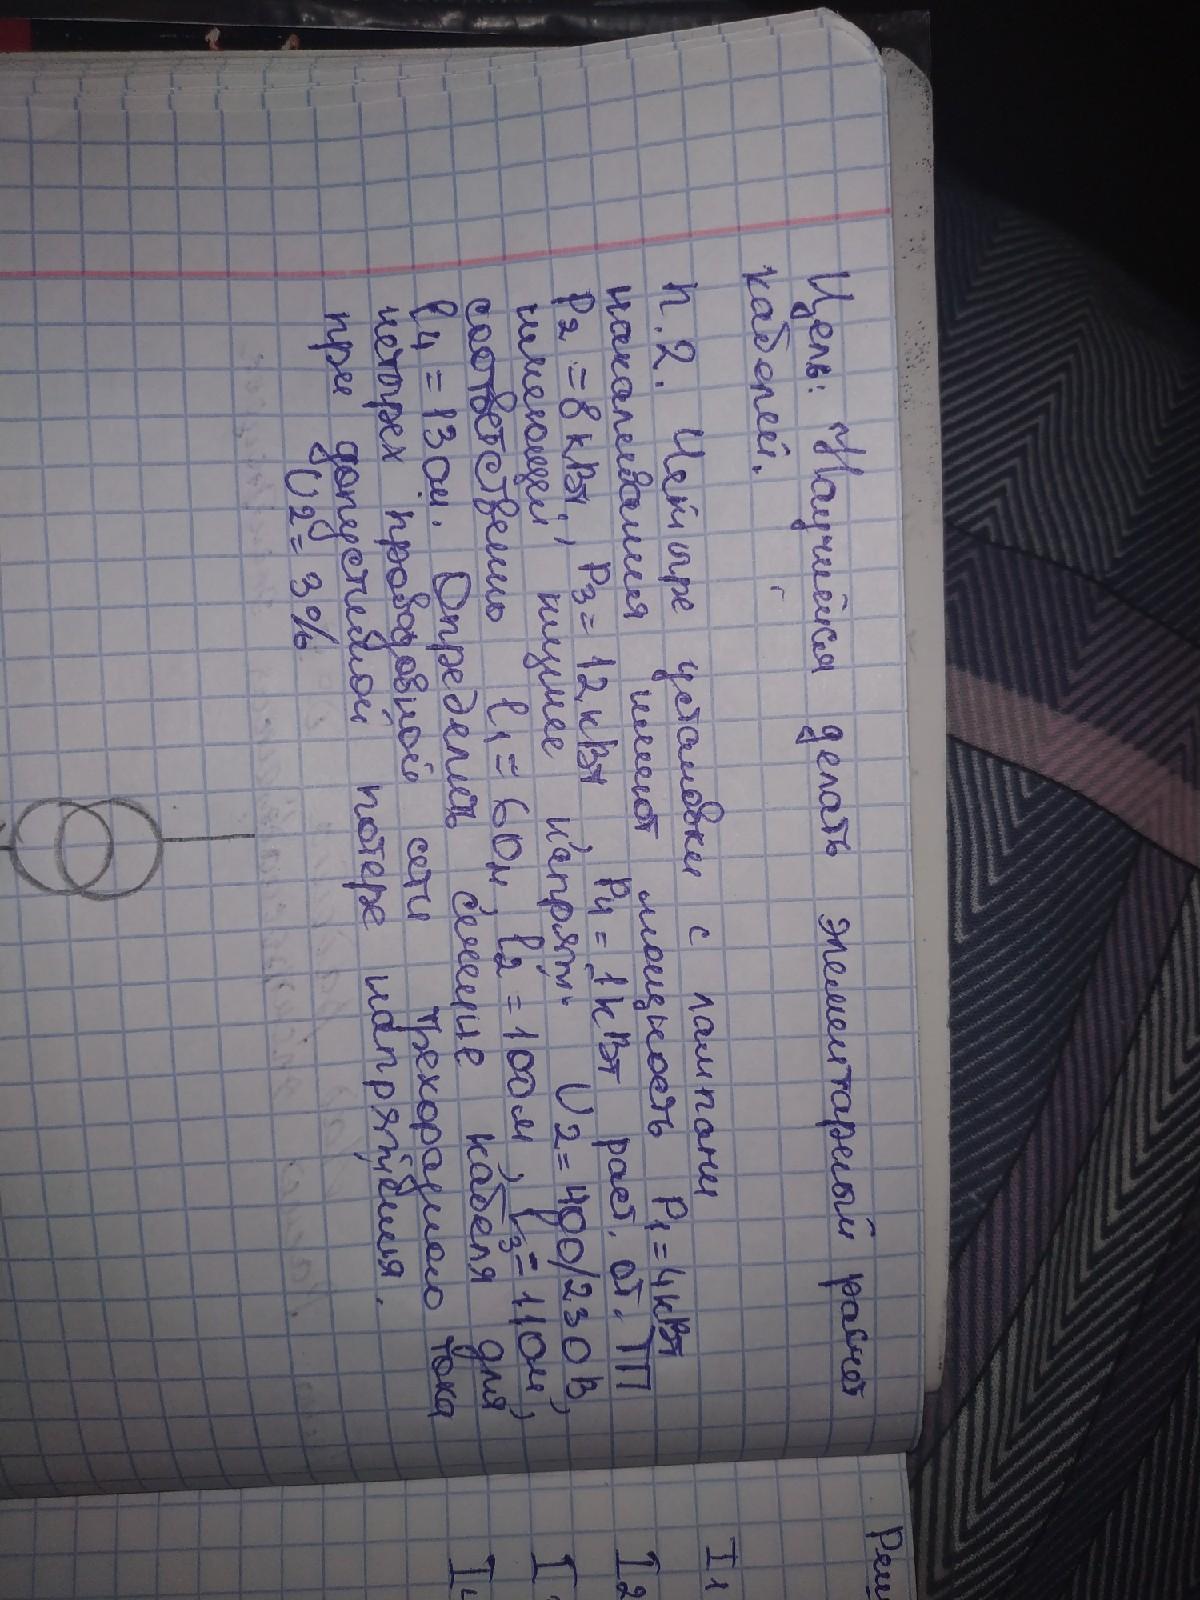 Цель: Научится делать элементарный расчёт
кабелей.
п.2. Четыре установки с лампами
накаливания имеют мощность P1=4кВт
P2=8кВт, P3=12кВт P4=1кВт раст. от. ТП
имеющей низшее напряж. U2=400/230В,
соответственно l1=60м, l2=100м, l3=110м,
l4=130м. Определить сечение кабеля для
четырех проводовной сети трехфазного тока
при допустимой потере напряжения.
U2=3%
Реш
I1
I2
I
I